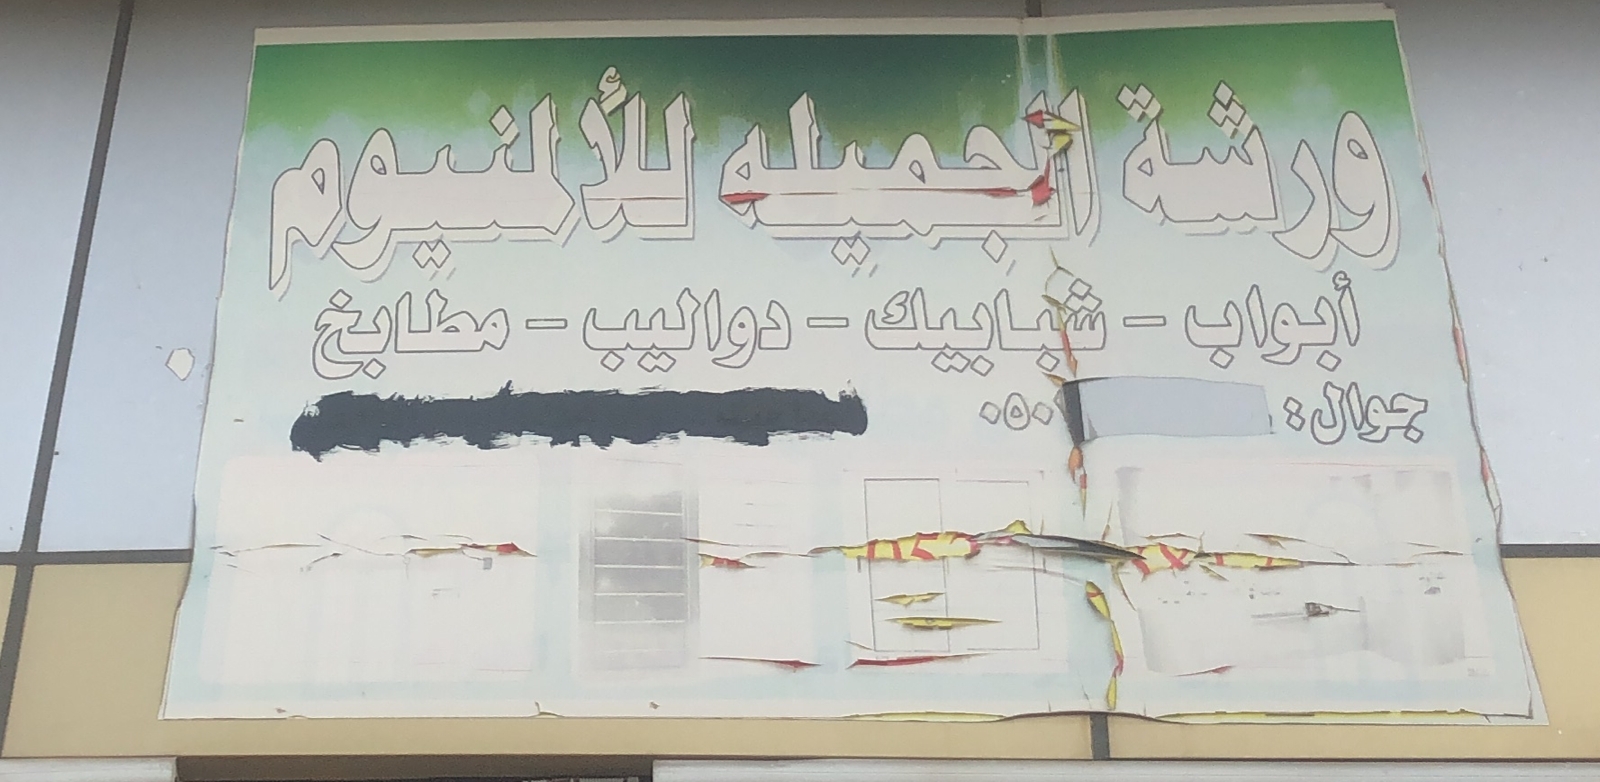 ورشة الجميله للألمنيوم
أبواب - شبابيك - دواليب - مطابخ
جوال: ٠٥٠